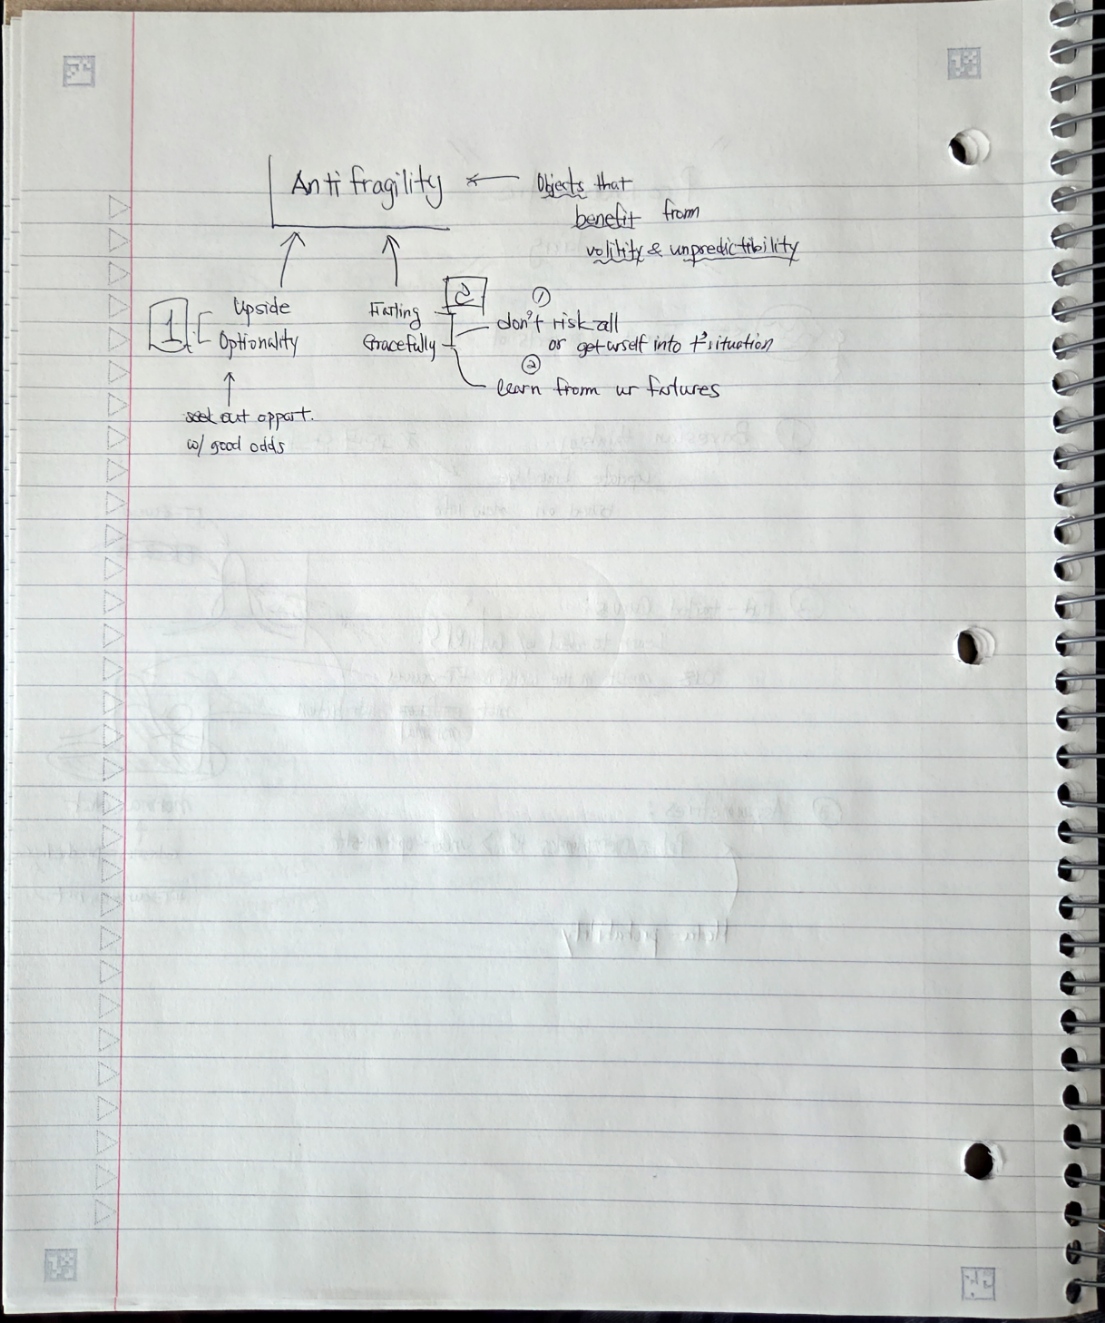 Antifragility ← Objects that
benefit from
volility & unpredictibility
1
Upside
Optionality
seek out opport.
w/ good odds
Failing
Gracefully
2
①
don't risk all
or get urself into situation
②
learn from ur failures